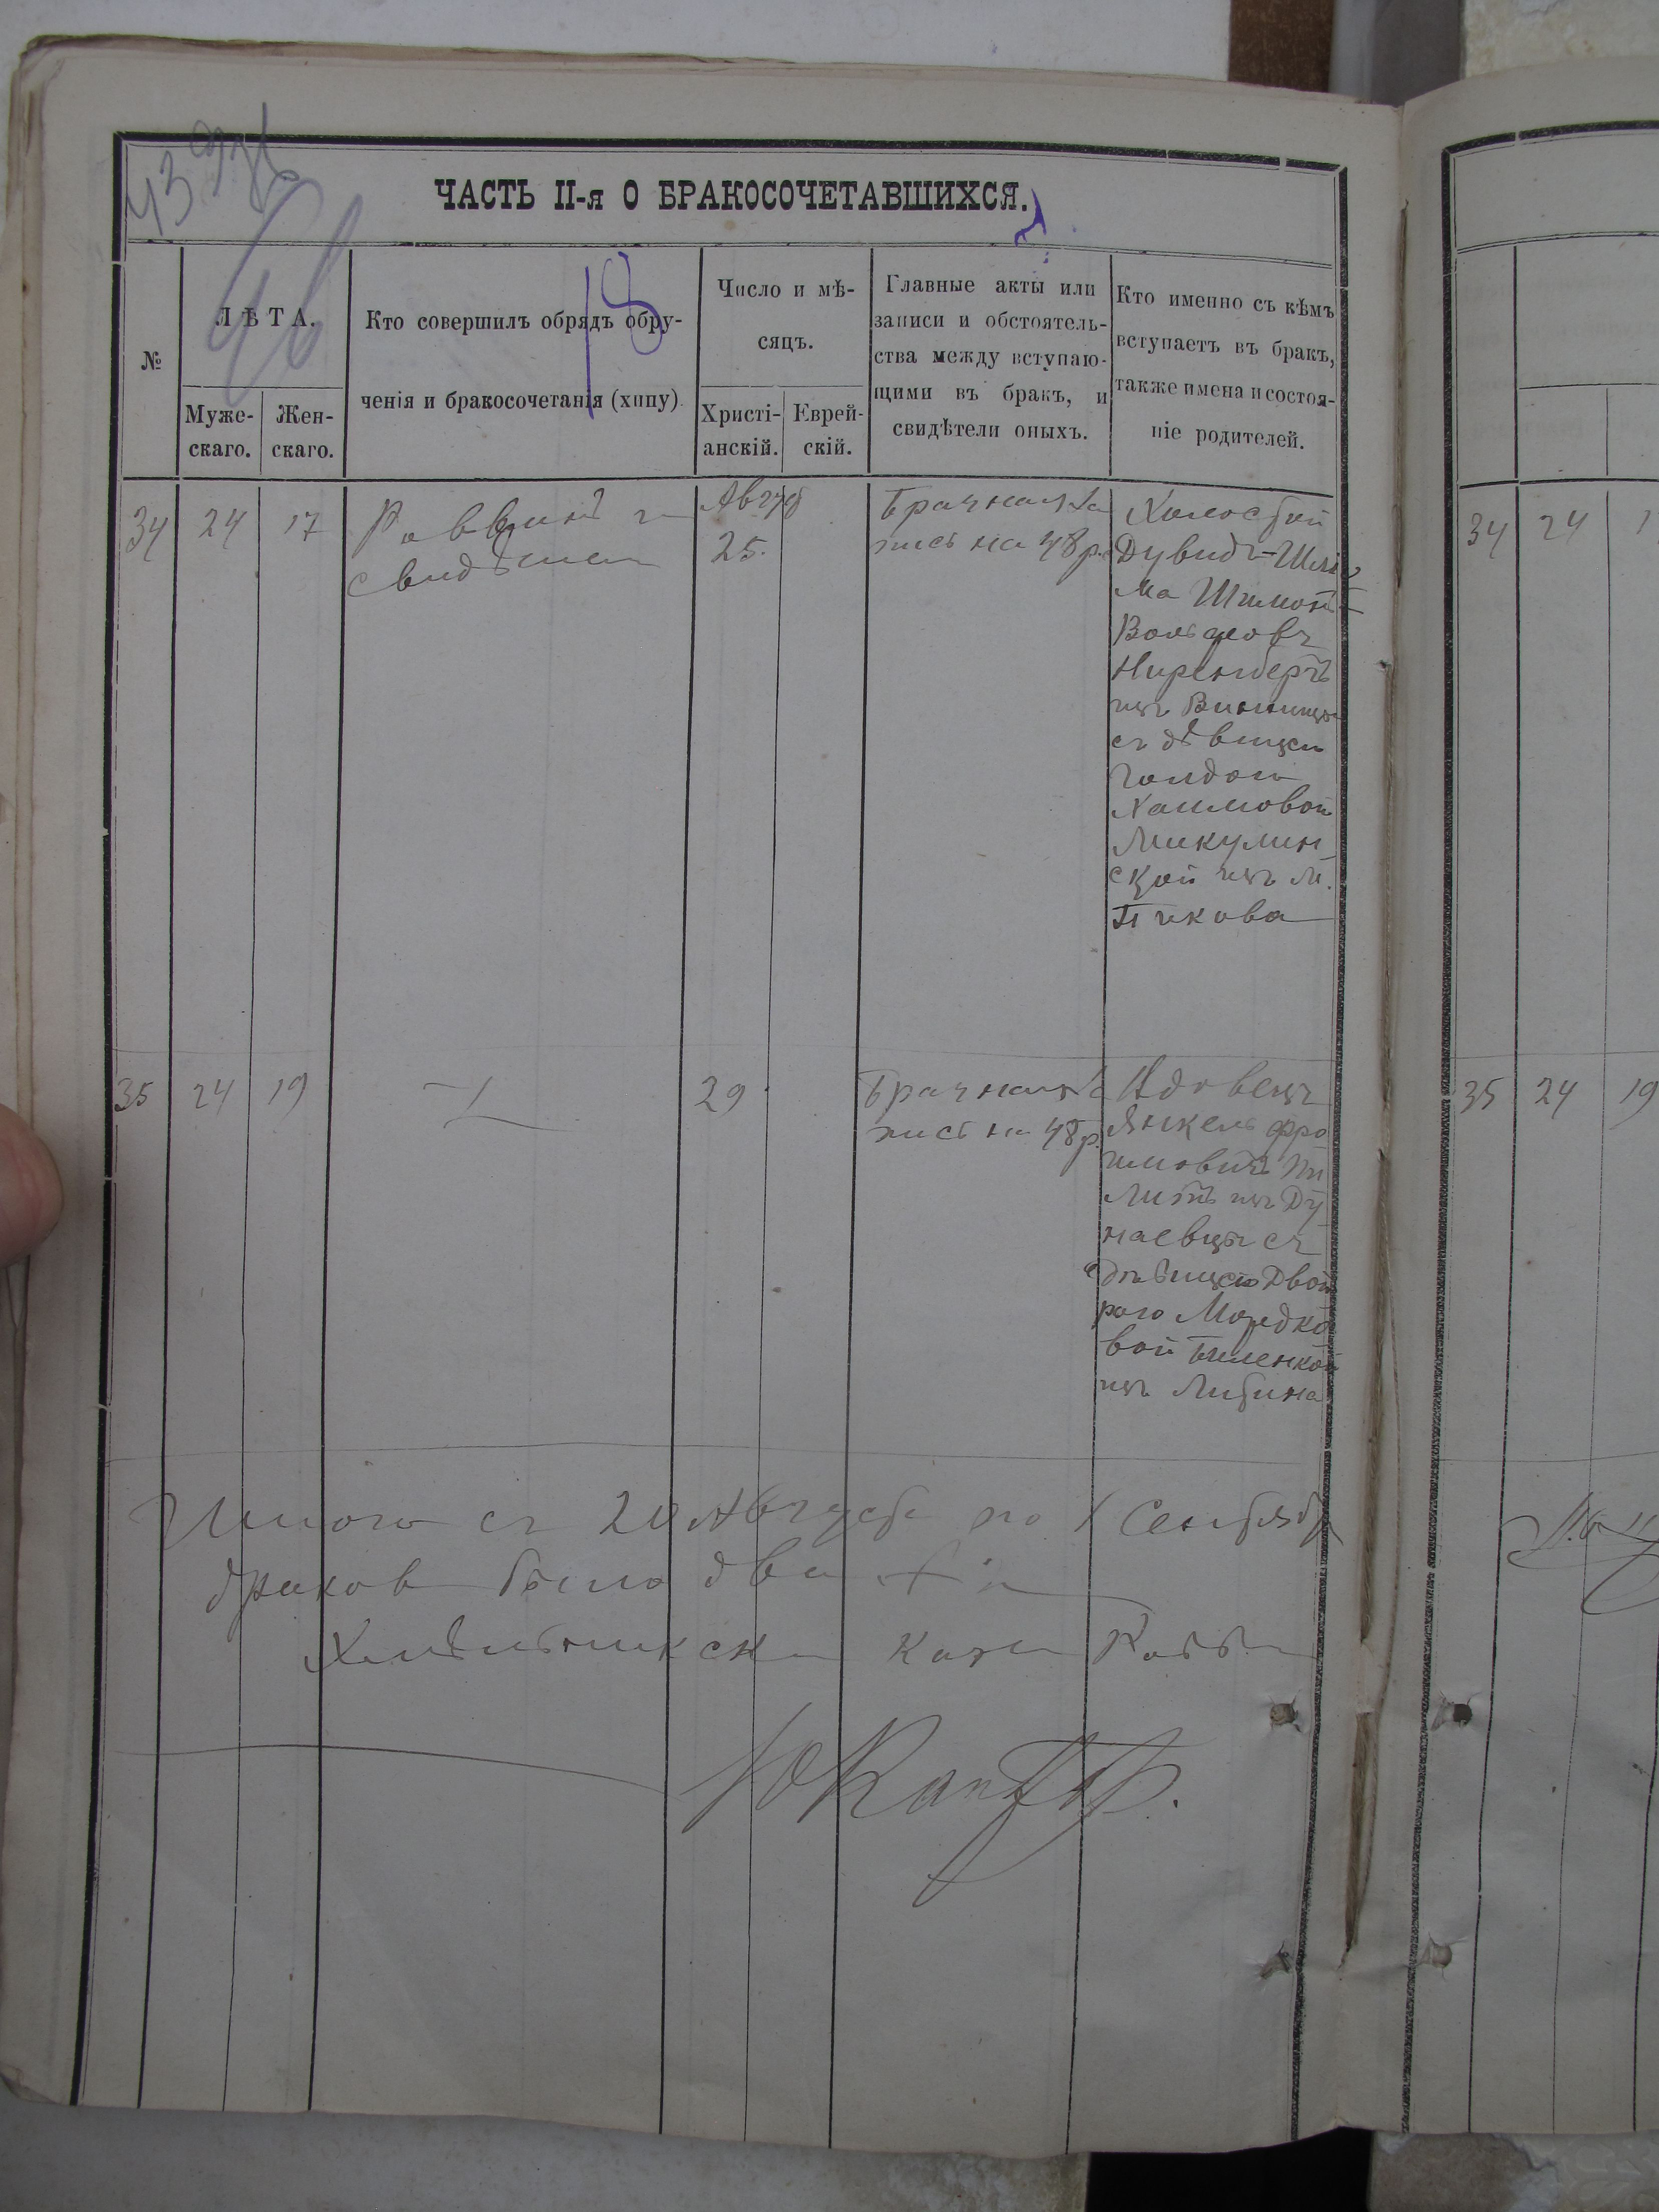 43
18
ЧАСТЬ II-я О БРАКОСОЧЕТАВШИХСЯ.
№
ЛѢТА.
Муже-
скаго.
Жен-
скаго.
Кто совершилъ обрядъ обру-
ченія и бракосочетанія (хипу).
Число и мѣ-
сяцъ.
Христі-
анскій.
Еврей-
скій.
Главные акты или
записи и обстоятель-
ства между вступаю-
щими въ бракъ, и
свидѣтели оныхъ.
Кто именно съ кѣмъ
вступаетъ въ бракъ,
также имена и состоя-
ніе родителей.
34
24
17
Раввинъ и
свидѣтели
Авгус
25.
Брачная за
пись на 48 р.
Холостой
Дувидъ-Шлі
ма Шимонъ
Вольфовъ
Ниренбергъ
изъ Винницы
съ дѣвицею
Голдою
Хаимовой
Микулин-
ской изъ м.
Пикова
35
24
19
29
Брачная за
пись на 48 р.
Вдовецъ
Янкель Фро
имовичъ
изъ Ду
наевцы съ
дѣвицею Двой
рою Мордко
вой Биленкой
изъ Литина
Итого съ 20 Августа по 1 Сентября
браков было два
Хмѣльникскій Казен Равви
ЮКантор.
34
24
1
35
24
19